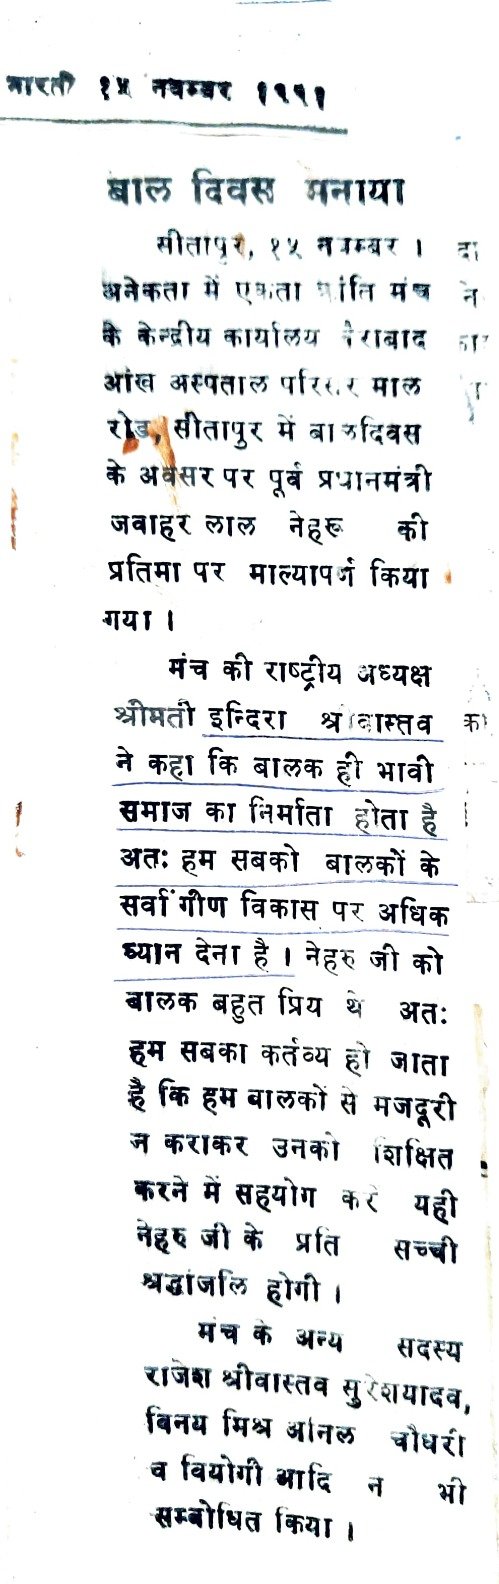 भारती १५ नवम्बर १९९१
बाल दिवस मनाया
सीतापुर, १५ नवम्बर ।
अनेकता में एकता शांति मंच
के केन्द्रीय कार्यालय खैराबाद
आंख अस्पताल परिसर माल
रोड, सीतापुर में बालदिवस
के अवसर पर पूर्व प्रधानमंत्री
जवाहर लाल नेहरू की
प्रतिमा पर माल्यापर्ण किया
गया ।
मंच की राष्ट्रीय अध्यक्ष
श्रीमती इन्दिरा श्रीवास्तव
ने कहा कि बालक ही भावी
समाज का निर्माता होता है
अतः हम सबको बालकों के
सर्वांगीण विकास पर अधिक
ध्यान देना है । नेहरु जी को
बालक बहुत प्रिय थे अतः
हम सबका कर्तव्य हो जाता
है कि हम बालकों से मजदूरी
न कराकर उनको शिक्षित
करने में सहयोग करें यही
नेहरु जी के प्रति सच्ची
श्रद्धांजलि होगी ।
मंच के अन्य सदस्य
राजेश श्रीवास्तव सुरेशयादव,
विनय मिश्र अनिल चौधरी
व वियोगी आदि न भी
सम्बोधित किया ।